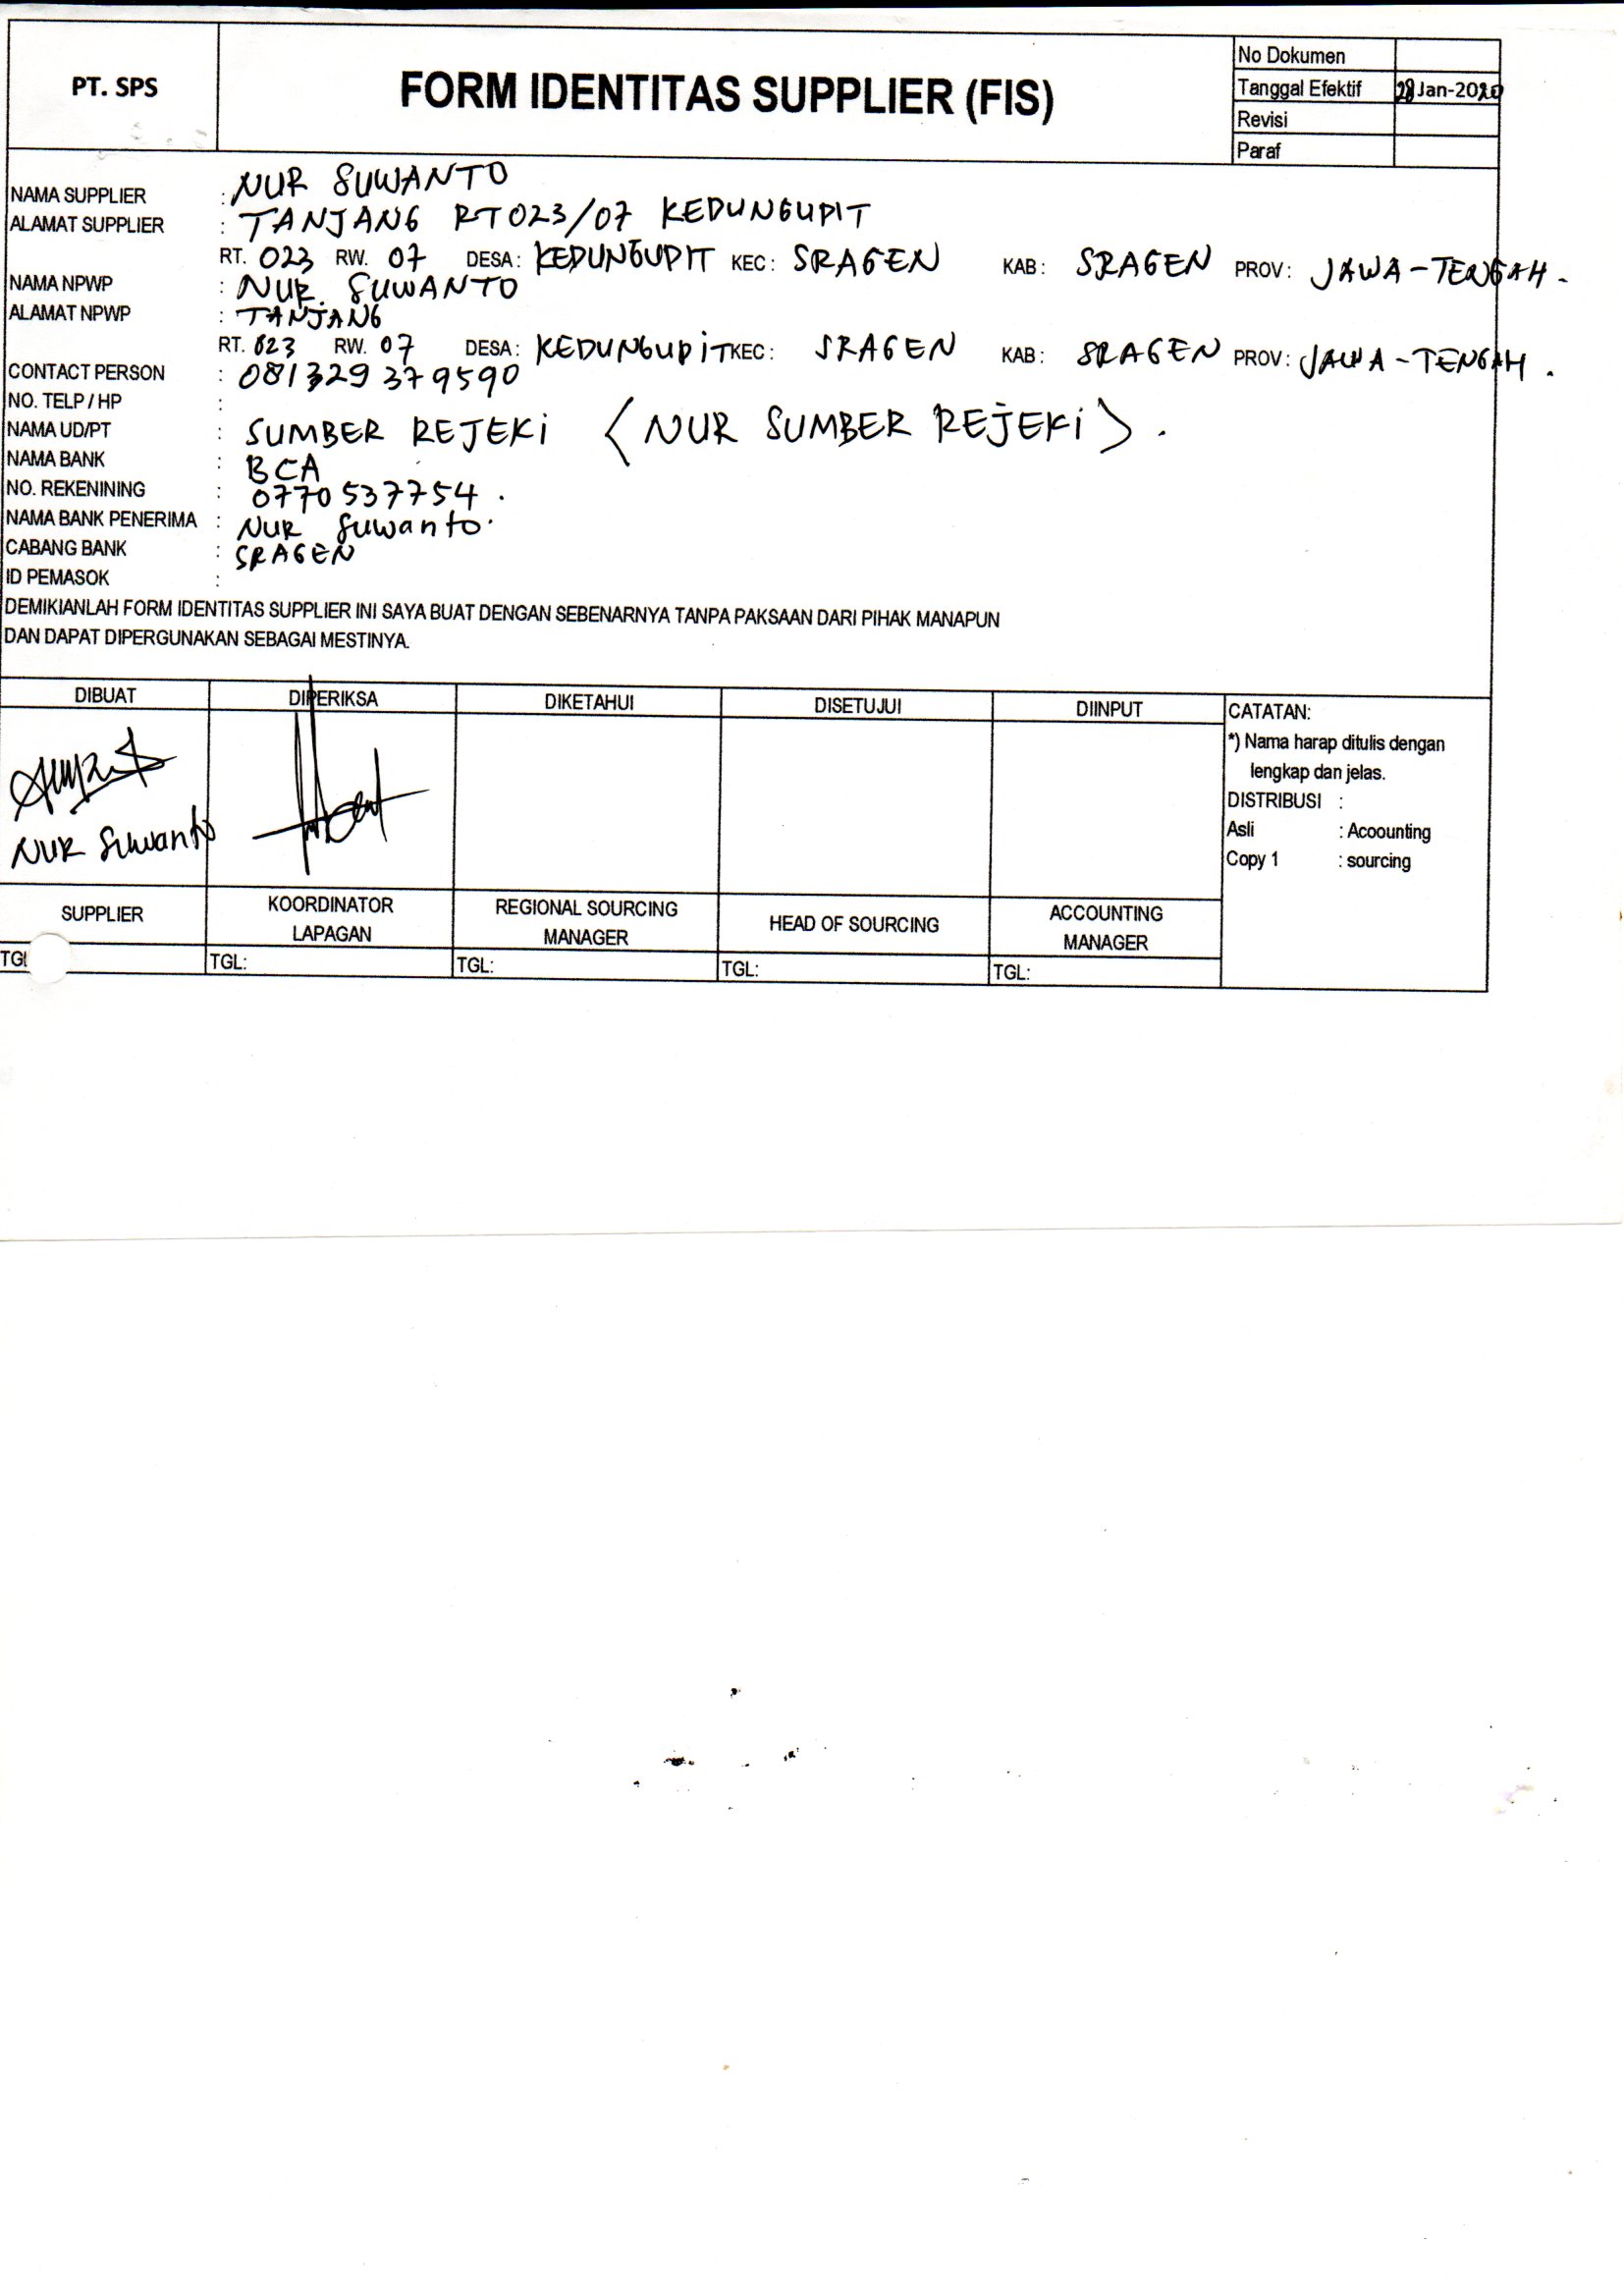 PT. SPS
FORM IDENTITAS SUPPLIER (FIS)
No Dokumen
Tanggal Efektif 28 Jan-2020
Revisi
Paraf
NAMA SUPPLIER : NUR SUWANTO
ALAMAT SUPPLIER : TANJANG RT 023/07 KEDUNGUPIT
RT. 023 RW. 07 DESA : KEDUNGUPIT KEC : SRAGEN KAB : SRAGEN PROV : JAWA-TENGAH.
NAMA NPWP : NUR. SUWANTO
ALAMAT NPWP : TANJANG
RT. 023 RW. 07 DESA : KEDUNGUPiT KEC : SRAGEN KAB : SRAGEN PROV : JAWA-TENGAH.
CONTACT PERSON : 081329379590
NO. TELP / HP :
NAMA UD/PT : SUMBER REJEKi (NUR SUMBER REJEKi).
NAMA BANK : BCA
NO. REKENINING : 0770537754.
NAMA BANK PENERIMA : NUR Suwanto.
CABANG BANK : SRAGEN
ID PEMASOK :
DEMIKIANLAH FORM IDENTITAS SUPPLIER INI SAYA BUAT DENGAN SEBENARNYA TANPA PAKSAAN DARI PIHAK MANAPUN
DAN DAPAT DIPERGUNAKAN SEBAGAI MESTINYA.
DIBUAT DIPERIKSA DIKETAHUI DISETUJUI DIINPUT
CATATAN:
*) Nama harap ditulis dengan
lengkap dan jelas.
DISTRIBUSI :
Asli : Acoounting
Copy 1 : sourcing
NUR Suwanto
SUPPLIER
KOORDINATOR
LAPAGAN
REGIONAL SOURCING
MANAGER
HEAD OF SOURCING
ACCOUNTING
MANAGER
TGL TGL: TGL: TGL: TGL: